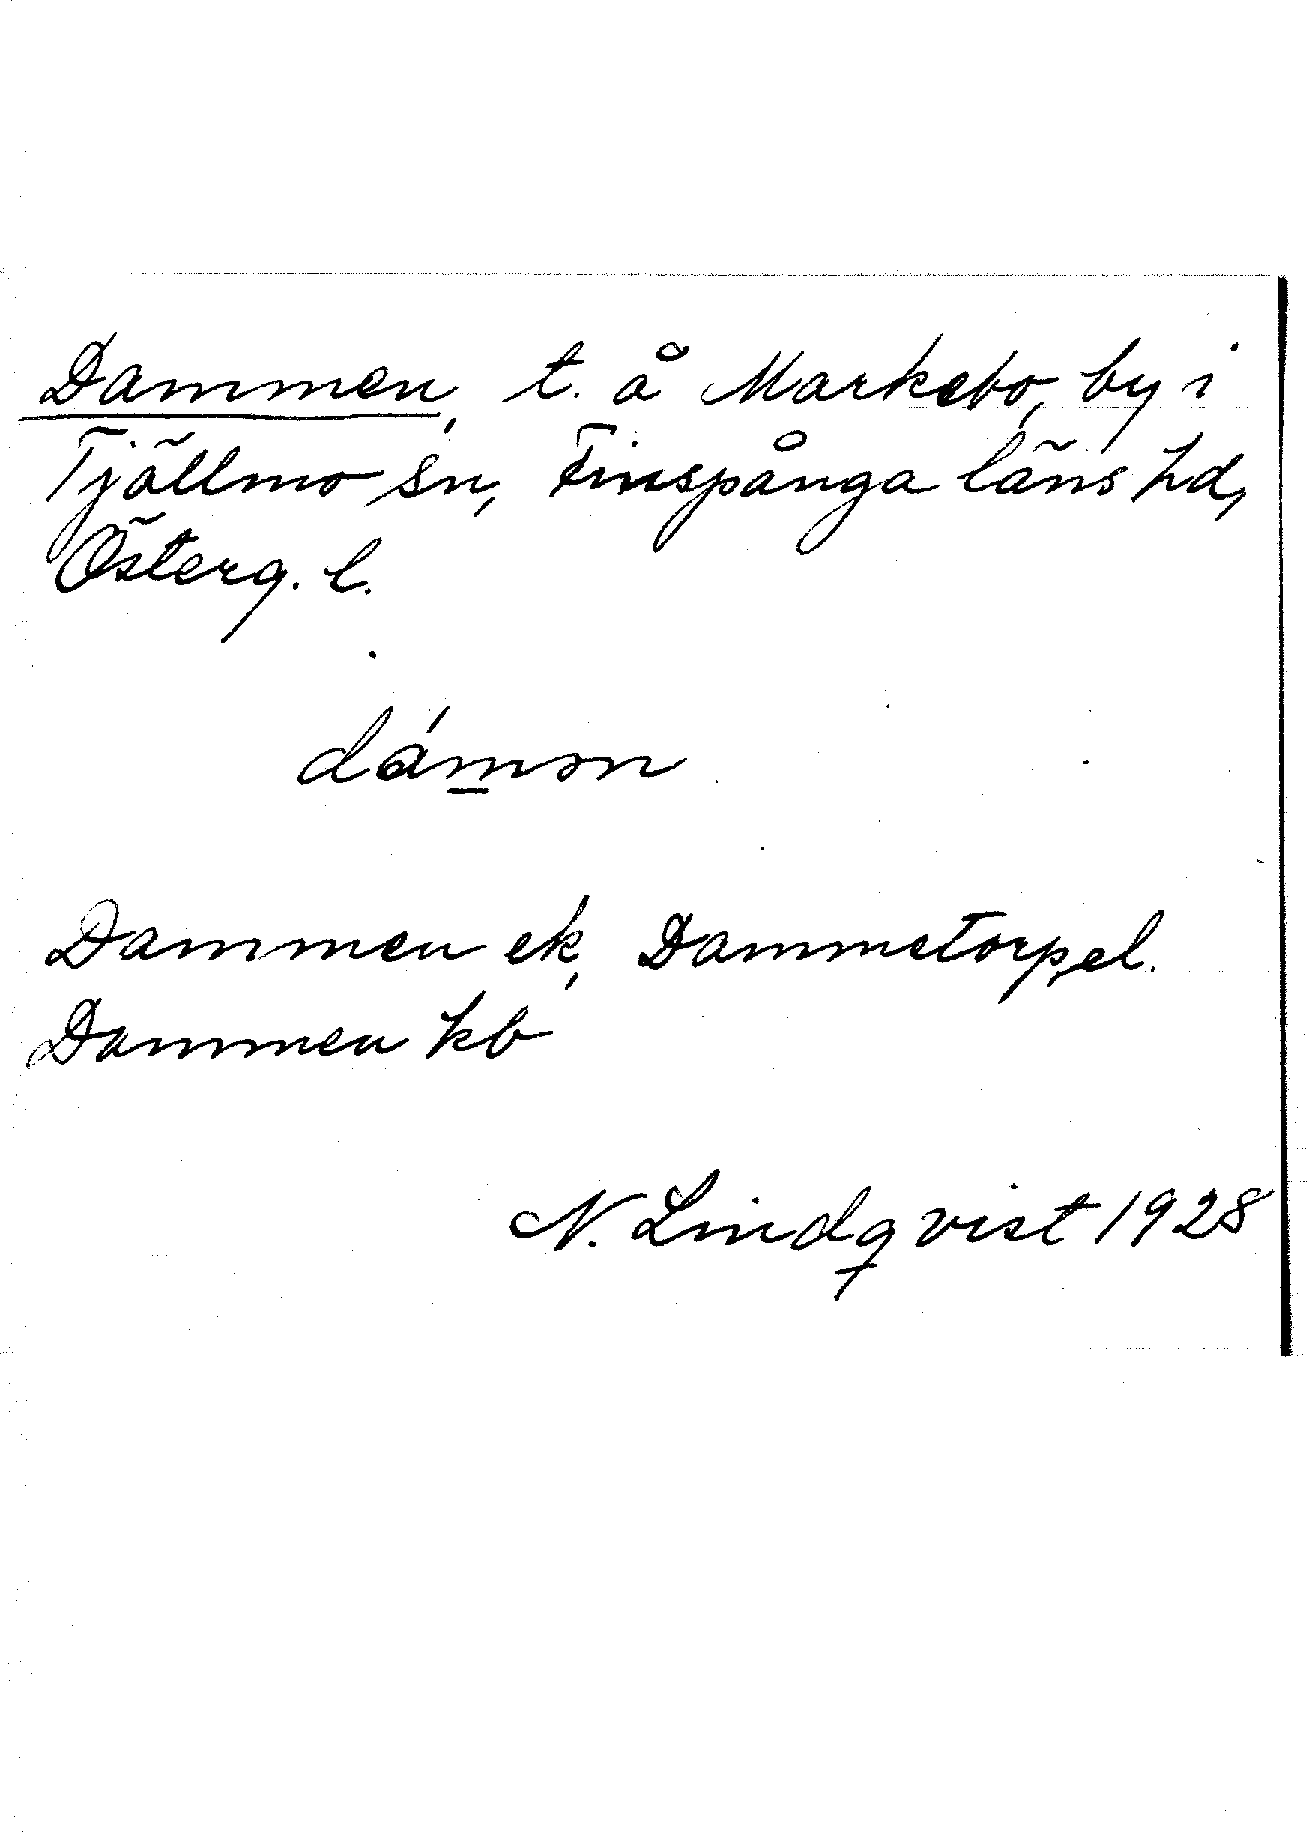 Dammen, t. å Markebo, by i
Tjällmo sn, Finspånga läns hd,
Österg. l.
dám̲ən
Dammen ek, Dammetorp el.
Dammen kb
N. Lindqvist 1928